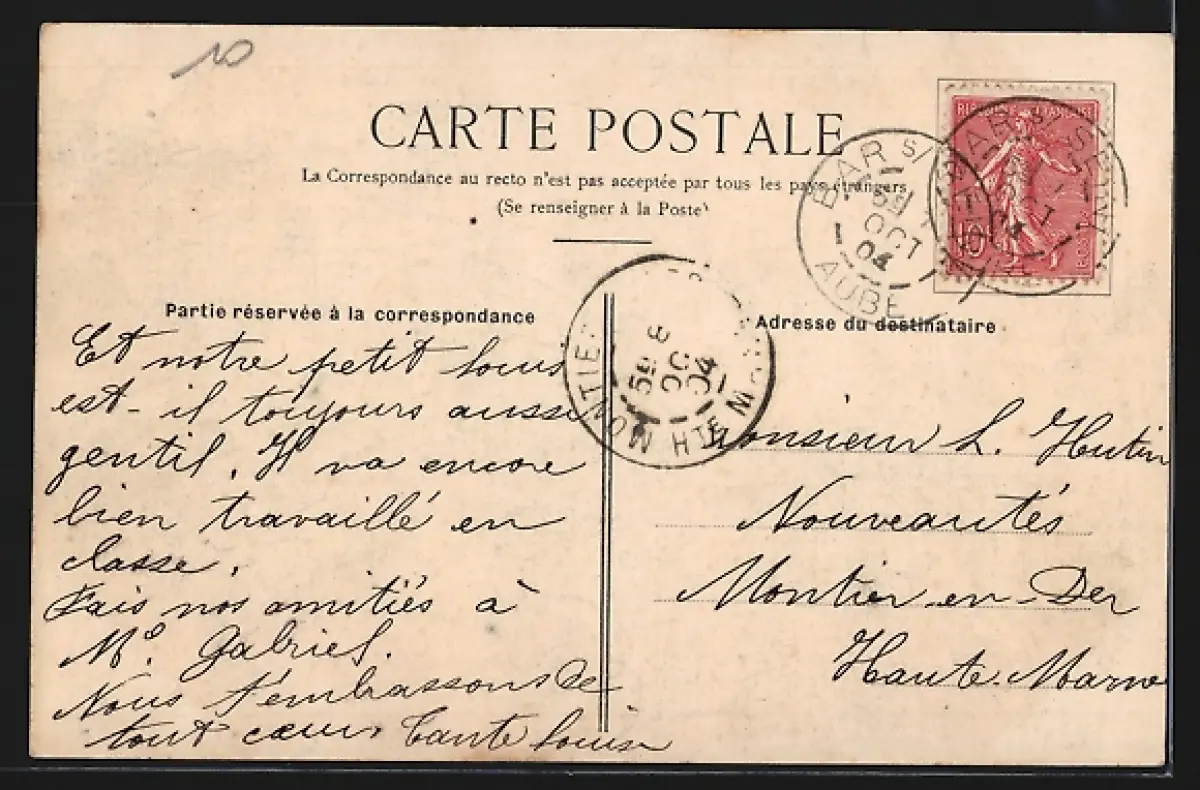 10
CARTE POSTALE
La Correspondance au recto n'est pas acceptée par tous les pays étrangers
(Se renseigner à la Poste)
BAR S/ SEINE
OCT
04
AUBE
BAR S/ SEINE
10
MONTIER
8
OC
04
HTE MARNE
Partie réservée à la correspondance
Et notre petit Louis
est-il toujours aussi
gentil. Il va encore
bien travaillé en
classe.
Fais nos amitiés à
Mr. Gabriel.
Nous t'embrassons de
tout cœur Tante Louise
Adresse du destinataire
Monsieur L. Hutin
Nouveautés
Montier-en-Der
Haute-Marne